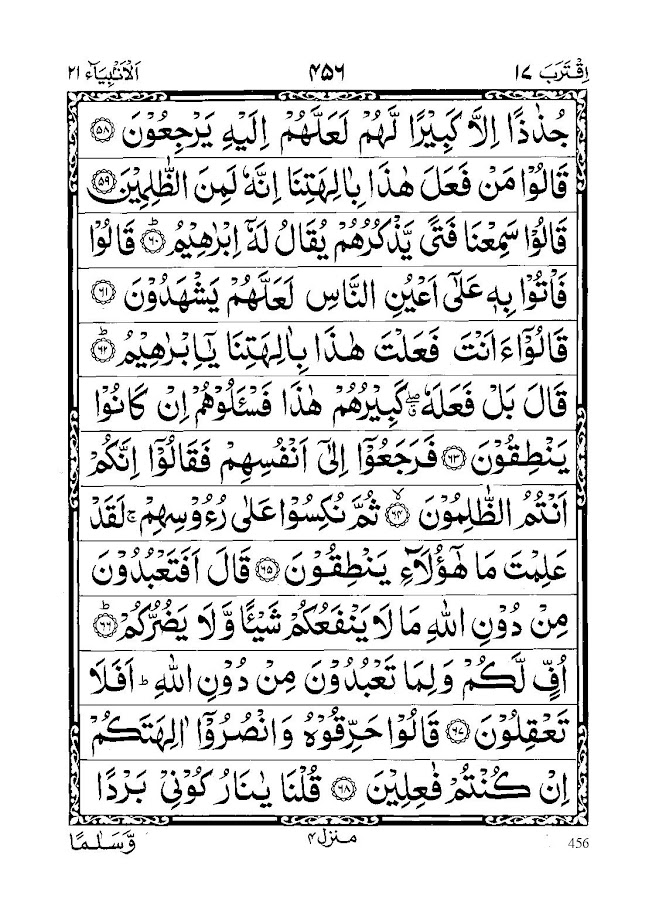 اِقْتَرَبَ ١٧ ٤٥٦ اَلْاَنْۢبِيَآء ٢١
جُذٰذًا اِلَّا كَبِيْرًا لَّهُمْ لَعَلَّهُمْ اِلَيْهِ يَرْجِعُوْنَ ۝٥٨
قَالُوْا مَنْ فَعَلَ هٰذَا بِاٰلِهَتِنَآ اِنَّهٗ لَمِنَ الظّٰلِمِيْنَ ۝٥٩
قَالُوْا سَمِعْنَا فَتًى يَّذْكُرُهُمْ يُقَالُ لَهٗٓ اِبْرٰهِيْمُ ؕ۝٦٠ قَالُوْا
فَاْتُوْا بِهٖ عَلٰٓى اَعْيُنِ النَّاسِ لَعَلَّهُمْ يَشْهَدُوْنَ ۝٦١
قَالُوْٓا ءَاَنْتَ فَعَلْتَ هٰذَا بِاٰلِهَتِنَا يٰٓاِبْرٰهِيْمُ ؕ۝٦٢
قَالَ بَلْ فَعَلَهٗ ۖۗ كَبِيْرُهُمْ هٰذَا فَسْـَٔلُوْهُمْ اِنْ كَانُوْا
يَنْطِقُوْنَ ۝٦٣ فَرَجَعُوْٓا اِلٰٓى اَنْفُسِهِمْ فَقَالُوْٓا اِنَّكُمْ
اَنْتُمُ الظّٰلِمُوْنَ ۙ۝٦٤ ثُمَّ نُكِسُوْا عَلٰى رُءُوْسِهِمْ ۚ لَقَدْ
عَلِمْتَ مَا هٰٓؤُلَآءِ يَنْطِقُوْنَ ۝٦٥ قَالَ اَفَتَعْبُدُوْنَ
مِنْ دُوْنِ اللّٰهِ مَا لَا يَنْفَعُكُمْ شَيْـًٔا وَّلَا يَضُرُّكُمْ ؕ۝٦٦
اُفٍّ لَّكُمْ وَلِمَا تَعْبُدُوْنَ مِنْ دُوْنِ اللّٰهِ ؕ اَفَلَا
تَعْقِلُوْنَ ۝٦٧ قَالُوْا حَرِّقُوْهُ وَانْصُرُوْٓا اٰلِهَتَكُمْ
اِنْ كُنْتُمْ فٰعِلِيْنَ ۝٦٨ قُلْنَا يٰنَارُ كُوْنِيْ بَرْدًا
وَّسَلٰمًا منزل ٤ 456